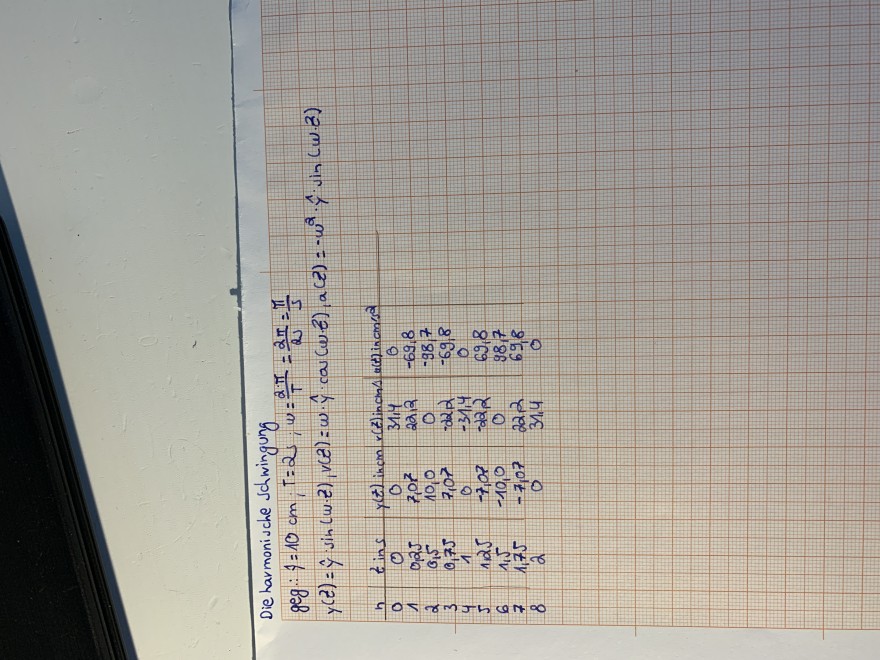 Die harmonische Schwingung
geg.: ŷ = 10 cm ; T = 2s ; ω = 2·π/T = 2π/2s = π/s
y(t) = ŷ · sin(ω·t) , v(t) = ω · ŷ · cos(ω·t) , a(t) = -ω² · ŷ · sin(ω·t)
n t in s y(t) in cm v(t) in cm/s a(t) in cm/s²
0 0 0 31,4 0
1 0,25 7,07 22,2 -69,8
2 0,5 10,0 0 -98,7
3 0,75 7,07 -22,2 -69,8
4 1 0 -31,4 0
5 1,25 -7,07 -22,2 69,8
6 1,5 -10,0 0 98,7
7 1,75 -7,07 22,2 69,8
8 2 0 31,4 0